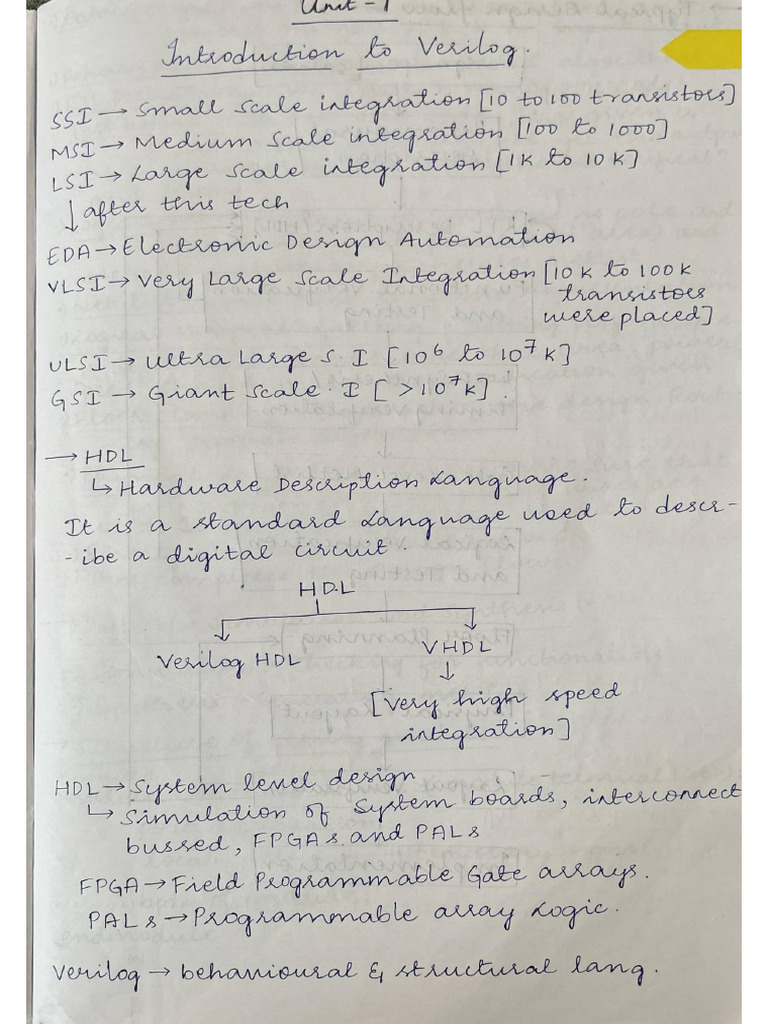 Unit - 1
Introduction to Verilog.
SSI → Small Scale integration [10 to 100 transistors]
MSI → Medium Scale integration [100 to 1000]
LSI → Large Scale integration [1K to 10K]
↓ after this tech
EDA → Electronic Design Automation
VLSI → Very Large Scale Integration [10K to 100K
transistors
were placed]
ULSI → Ultra Large S. I [10⁶ to 10⁷K]
GSI → Giant Scale. I [>10⁷K].
→ HDL
↳ Hardware Description Language.
It is a standard Language used to descr-
-ibe a digital circuit.
HDL
Verilog HDL VHDL
↓
[Very high speed
integration]
HDL → System level design
↳ Simulation of System boards, interconnect
bussed, FPGAs and PALs
FPGA → Field Programmable Gate arrays.
PALs → Programmable array Logic.
Verilog → behavioural & structural lang.